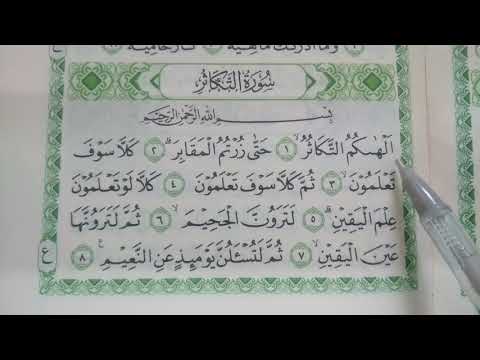 وَمَآ اَدْرٰىكَ مَاهِيَهْ نَارٌ حَامِيَةٌ
سُوْرَةُ التَّكَاثُرِ
بِسْمِ اللّٰهِ الرَّحْمٰنِ الرَّحِيْمِ
اَلْهٰىكُمُ التَّكَاثُرُۙ ١ حَتّٰى زُرْتُمُ الْمَقَابِرَۗ ٢ كَلَّا سَوْفَ
تَعْلَمُوْنَۙ ٣ ثُمَّ كَلَّا سَوْفَ تَعْلَمُوْنَ ٤ كَلَّا لَوْ تَعْلَمُوْنَ
عِلْمَ الْيَقِيْنِۗ ٥ لَتَرَوُنَّ الْجَحِيْمَۙ ٦ ثُمَّ لَتَرَوُنَّهَا
عَيْنَ الْيَقِيْنِۙ ٧ ثُمَّ لَتُسْـَٔلُنَّ يَوْمَىِٕذٍ عَنِ النَّعِيْمِ ٨
ع